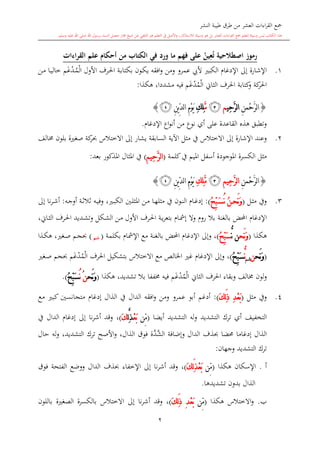 جمع القراءات العشر من طرق طيبة النشر
رموز اصطلاحية تُعينُ على فهم ما ورد في الكتاب من أحكام علم القراءات
١. الإشارة إلى الإدغام الكبير لأبي عمرو ومن وافقه يكون بكتابة الحرف الأول الْمُدْغَمِ خاليا من
الحركة وكتابة الحرف الثاني الْمُدْغَمِ فيه مشددا، هكذا:
﴿ الرَّحْمَٰنِ الرَّحِيمِ ۝ مَلِكِ يَوْمِ الدِّينِ ۝ ﴾
وتطبق هذه القاعدة على أي نوع من أنواع الإدغام.
٢. وعند الإشارة إلى الاختلاس في مثل الآية السابقة يشار إلى الاختلاس بحركة صغيرة بلون مخالف
مثل الكسرة الموجودة أسفل الميم في كلمة (الرَّحِيمِ) في المثال المذكور بعد:
﴿ الرَّحْمَٰنِ الرَّحِيمِ ۝ مَلِكِ يَوْمِ الدِّينِ ۝ ﴾
٣. وفي مثل (وَنَحْنُ نُسَبِّحُ): إدغام النون في مثلها من المثلين الكبير، وفيه ثلاثة أوجه: أشرنا إلى
الإدغام المحض بالغنة بلا روم ولا إشمام بتعرية الحرف الأول من الشكل وتشديد الحرف الثاني،
هكذا (وَنَحْن نُّسَبِّحُ)، وإلى الإدغام المحض بالغنة مع الإشمام بكلمة ( ) بحجم صغير، هكذا
(وَنَحْن نُّسَبِّحُ)، وإلى الإدغام غير الخالص مع الاختلاس بتشكيل الحرف الْمُدْغَمِ بحجم صغير
ولون مخالف وبقاء الحرف الثاني الْمُدْغَمِ فيه مخففا بلا تشديد، هكذا (وَنَحْنُ نُسَبِّحُ).
٤. وفي مثل (بَعْدِ ذَٰلِكَ): أدغم أبو عمرو ومن وافقه الدال في الذال إدغام متجانسين كبير مع
التخفيف أي ترك التشديد وله التشديد أيضا (مِنْ بَعْد ذَّٰلِكَ)، وقد أشرنا إلى إدغام الدال في
الذال إدغاما محضا بحذف الدال وإضافة الشَّدَّة فوق الذال، والأصح ترك التشديد، وله حال
ترك التشديد وجهان:
أ. الإسكان هكذا (مِنْ بَعْدذَٰلِكَ)، وقد أشرنا إلى الإخفاء بحذف الدال ووضع الفتحة فوق
الذال بدون تشديدها.
ب. والاختلاس هكذا (مِنْ بَعْدِ ذَٰلِكَ)، وقد أشرنا إلى الاختلاس بالكسرة الصغيرة باللون
٢